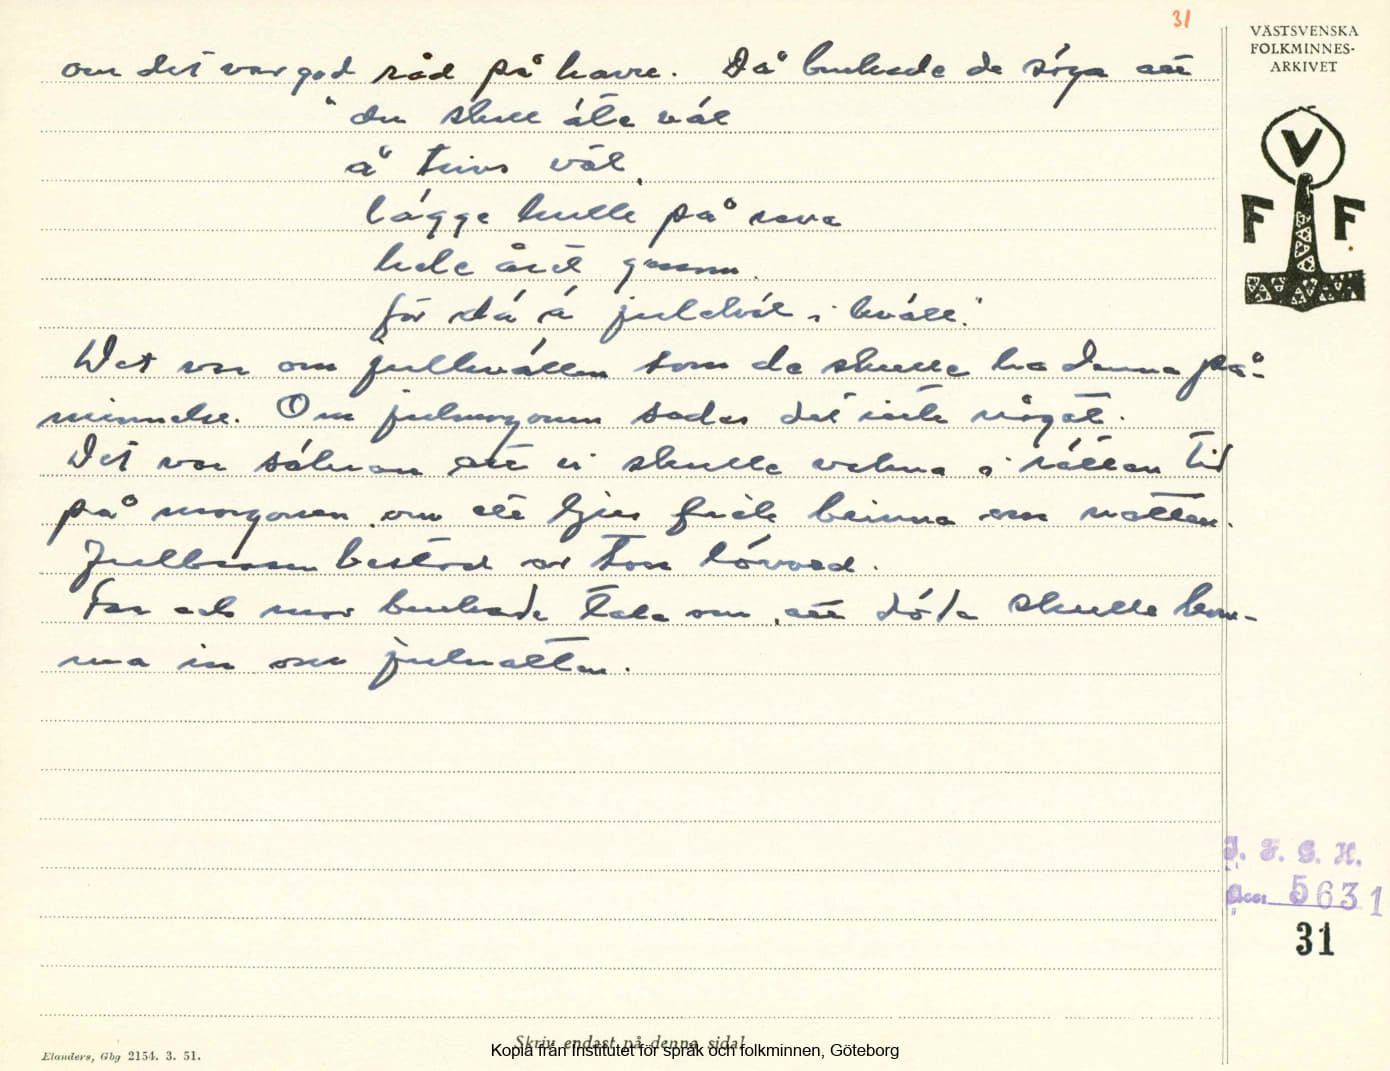 31
VÄSTSVENSKA
FOLKMINNES-
ARKIVET
V
F F
om det var god råd på havre. Då brukade de söga att
"du skall äta väl
å trivs väl,
lägge hulle på reva
hele året genom.
för dä ä julekväl i kväll."
Det var om julkvällen som de skulle ha denna på-
minnelse. Om julmorgonen sades det inte något.
Det var såluan att vi skulle vakna i rättan tid
på morgonen, om ett ljus fick brinna om natten.
Julbrasan bestod av torr lövved.
Far och mor brukade tala om, att döla skulle kom-
ma in om julnatten.
I. F. G. H.
Acc. 5631
31
Elanders, Gbg 2154. 3. 51.
Skriv endast på denna sida!
Kopia från Institutet för språk och folkminnen, Göteborg